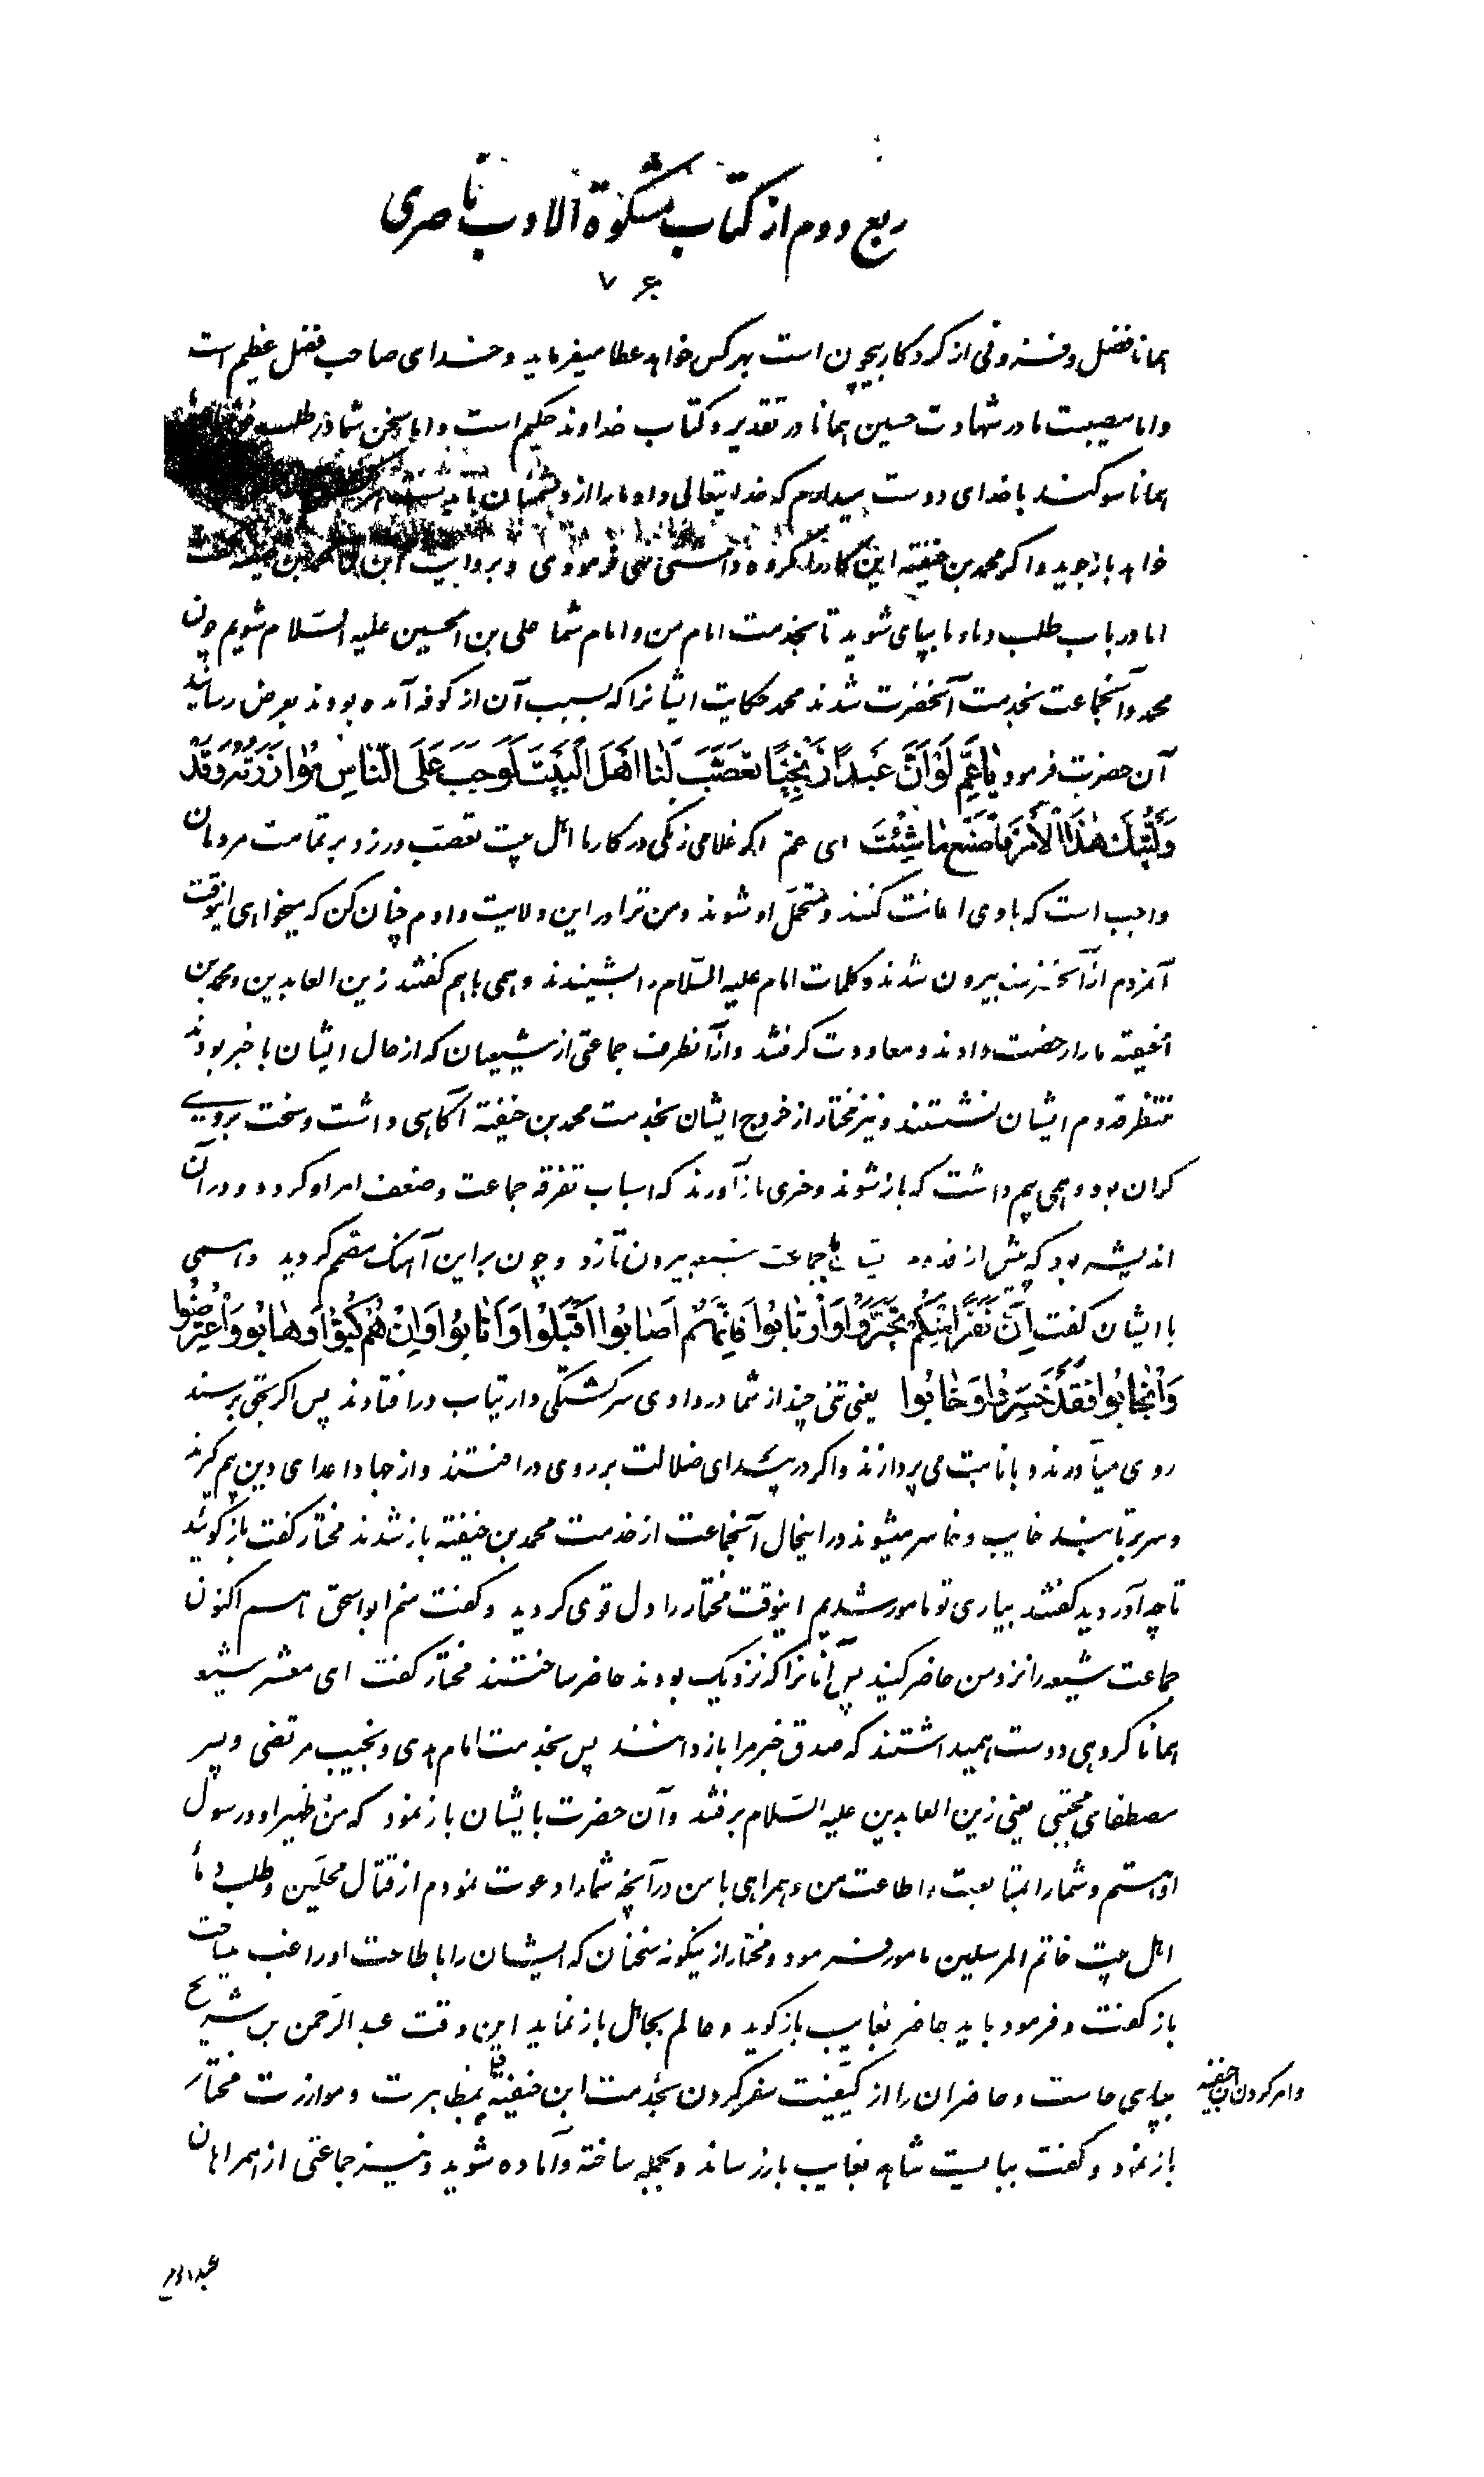 ربع دوم از کتاب مشکوة الادب ناصری
۷۶
همانا فضل و فزونی از کردکار بیچون است بهرکس خواهد عطا میفرماید و خدای صاحب فضل عظیم است
واما مصیبت ما در شهادت حسین همانا در تقدیر و کتاب خداوند حکیم است واما سخن شما در طلب
همانا سوکند باخدای دوست میدارم که خدایتعالی داد ما را از دشمنان ما
خواهد باز جوید واکر محمد بن حنفیه این کار را مکروه داشتی نهی فرمودی و بروایت ابن نما محمد بن حنفیه گفت
اما در باب طلب دماء ما بپای شوید تا بخدمت امام من و امام شما علی بن الحسین علیه السّلام شویم چون
محمد و آنجماعت بخدمت آنحضرت شدند محمد حکایت ایشانرا که بسبب آن از کوفه آمده بودند بعرض رسانید
آن حضرت فرمود یا عَمِّ لَوْ اَنَّ عَبداً زَنْجِیّاً تَعَصَّبَ لَنا اَهْلَ الْبَیْتِ لَوَجَبَ عَلَی النّاسِ مُوازَرَتُهُ وَقَدْ
وَلَّیْتُکَ هٰذَا الْاَمْرَ فَاصْنَعْ ما شِئْتَ ای عم اکر غلامی زنکی در کار ما اهل بیت تعصّب ورزد بر تمامت مردمان
واجب است که با وی اعانت کنند و متحمّل او شوند و من ترا در این ولایت دادم چنان کن که میخواهی اینوقت
آنمردم از آنحضرت بیرون شدند و کلمات امام علیه السّلام را بشنیدند و همی باهم کفتند زین العابدین و محمد بن
الحنفیّه ما را رخصت دادند و معاودت کرفتند و از آنطرف جماعتی از شیعیان که از حال ایشان باخبر بودند
منتظر قدوم ایشان نشستند و نیز مختار از خروج ایشان بخدمت محمد بن حنفیّه آکاهی داشت و سخت بروی
کران بود و همی بیم داشت که باز شوند و خبری باز آورند که اسباب تفرقه جماعت و ضعف امر او کردد و در آن
اندیشه بود که پیش از قدوم جماعت شیعه بیرون تازد و چون بر این آهنک مصمّم کردید و همی
با ایشان کفت اِنَّ نَفَراً مِنْکُمْ تَحَیَّرُوا وَارْتابُوا فَاِنْ هُمْ اَصابُوا اَقْبَلُوا وَاَنابُوا وَاِنْ هُمْ کَبَوْا وَهابُوا وَاعْتَرَضُوا
وَانْجابُوا فَقَدْ خَسِرُوا وَخابُوا یعنی تنی چند از شما در وادی سرکشتکی و ارتیاب در افتادند پس اکر بحق برسند
روی میآورند و بانابت می پردازند و اکر در بیدای ضلالت بر روی در افتند و از جهاد اعدای دین بیم کیرند
و سر برتابند خایب و خاسر میشوند در اینحال آنجماعت از خدمت محمد بن حنفیّه باز شدند مختار کفت باز کوئید
تا چه آوردید کفتند بیاری تو مامور شدیم اینوقت مختار را دل قوی کردید و کفت منم ابو اسحق هم اکنون
جماعت شیعه را نزد من حاضر کنید پس آنانرا که نزدیک بودند حاضر ساختند مختار کفت ای معشر شیعه
همانا کروهی دوست همیداشتند که صدق خبر مرا باز دانند پس بخدمت امام هدی و نجیب مرتضی و پسر
مصطفای مجتبی یعنی زین العابدین علیه السّلام برفتند و آن حضرت بایشان باز نمود که من ظهیر او و رسول
او هستم و شما را بمتابعت و اطاعت من و همراهی با من در آنچه شما را دعوت نمودم از قتال محلّین و طلب دماء
اهل بیت خاتم المرسلین مامور فرمود و مختار از اینکونه سخنان که ایشان را باطاعت او راغب میساخت
باز کفت و فرمود باید حاضر بغایب باز کوید و عالم بجاهل باز نماید این وقت عبد الرّحمن بن شریح
بپای خاست و حاضران را از کیفیّت سفر کردن بخدمت ابن حنفیّه بمظاهرت و موازرت مختار
وامر کردن ابن حنفیّه
باز نمود و کفت ببایست شاهد بغایب باز رساند و بجمله ساخته و آماده شوید و نیز جماعتی از همراهان
عبد الر